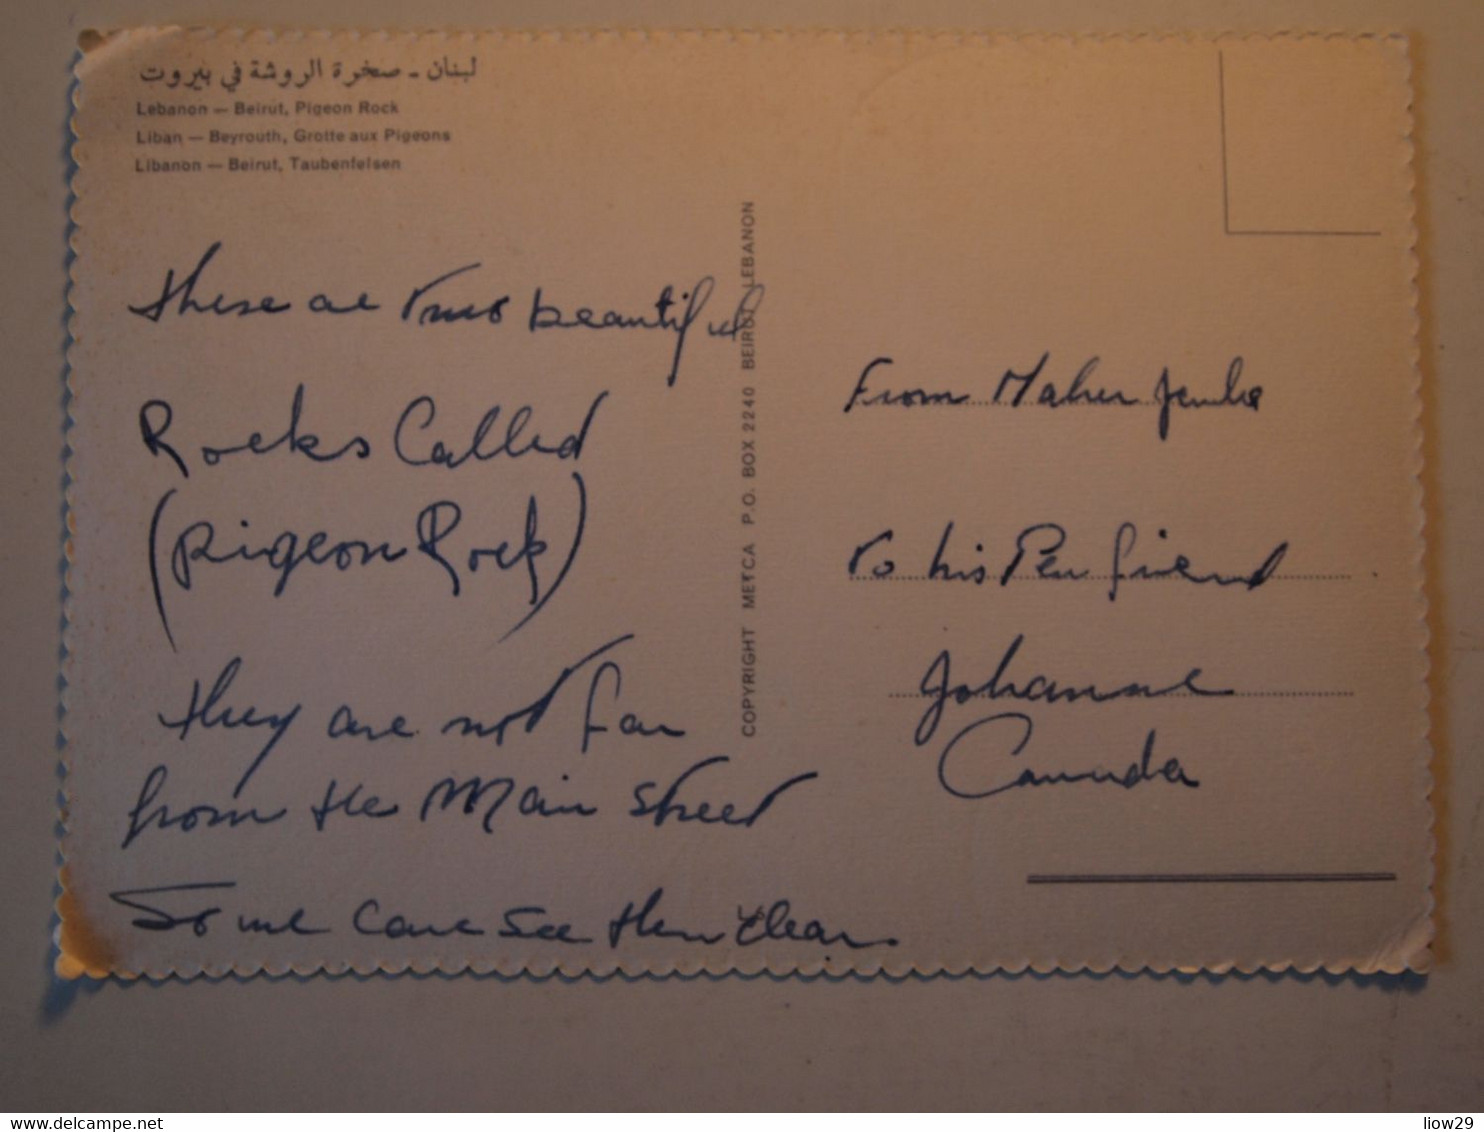 لبنان - صخرة الروشة في بيروت
Lebanon — Beirut, Pigeon Rock
Liban — Beyrouth, Grotte aux Pigeons
Libanon — Beirut, Taubenfelsen
These are two beautiful
Rocks Called
(pigeon Rock)
they are not far
from the Main Street
So we can see them clear.
COPYRIGHT METCA P.O. BOX 2240 BEIRUT LEBANON
From Maher
to his Pen friend
Johanne
Canada
delcampe.net
liow29